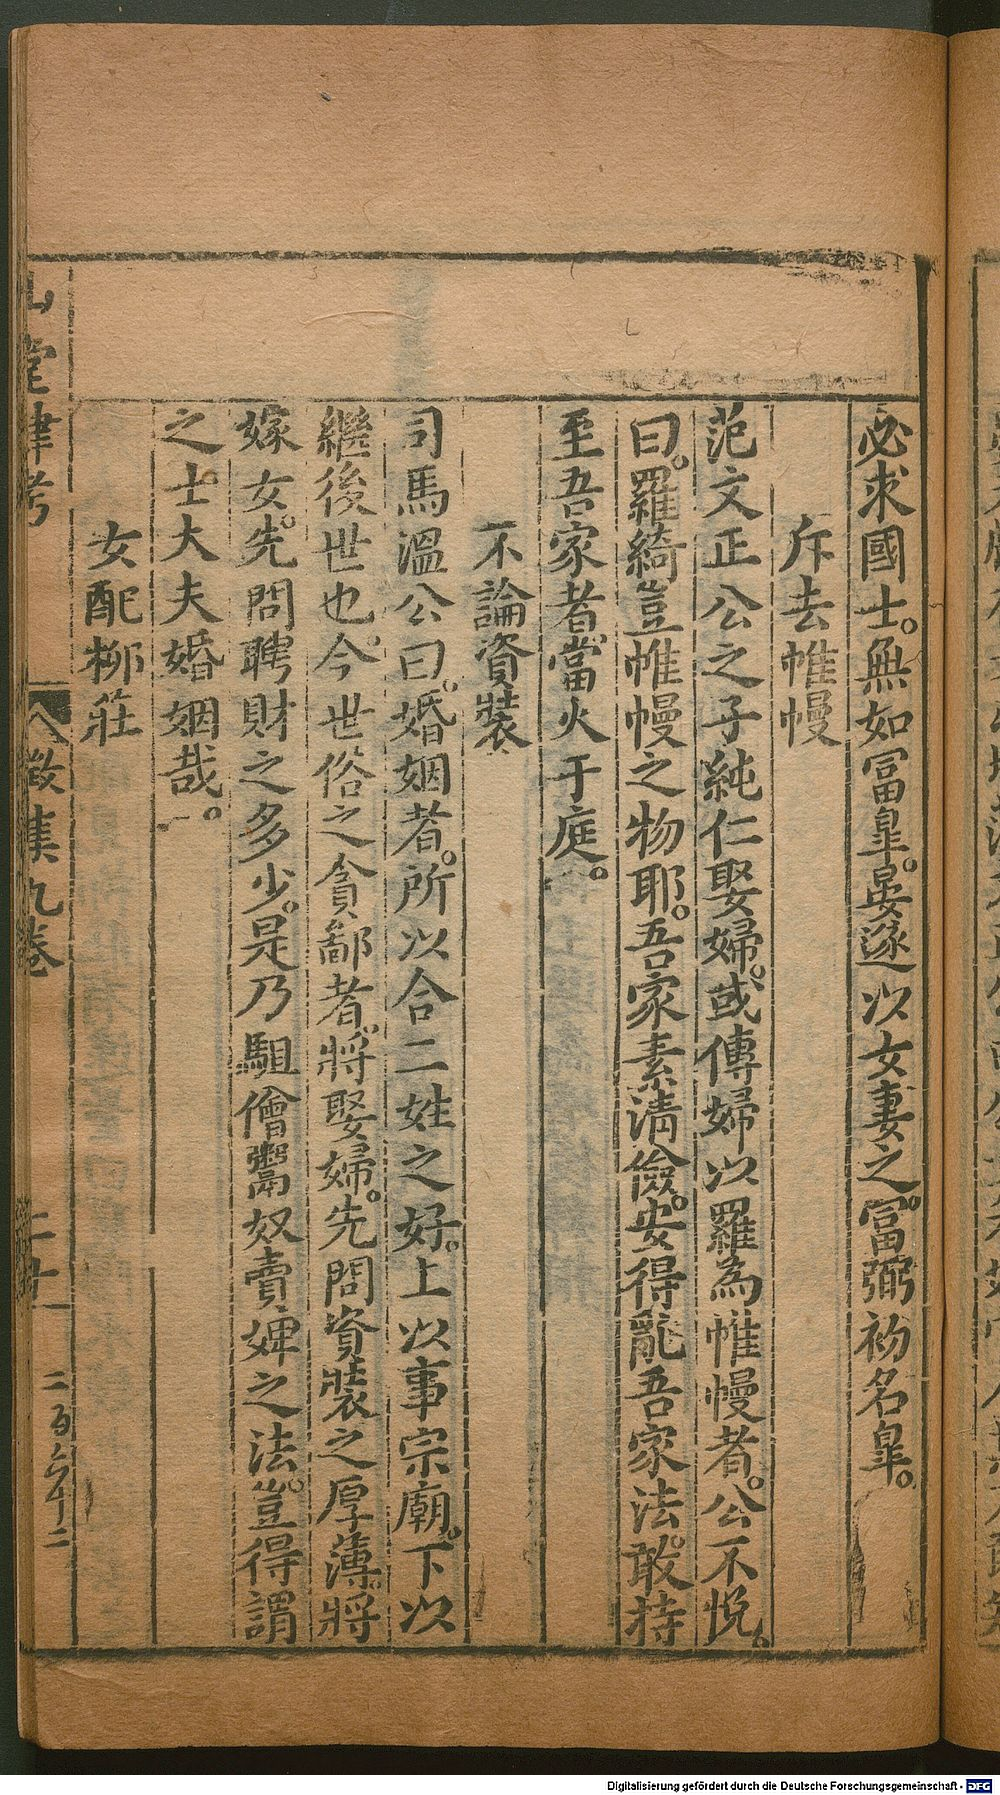 必求國士。無如冨臯。晏遂以女妻之。冨弼初名臯。
斥去帷幔
范文正公之子純仁娶婦。或傳婦以羅為帷幔者。公不悅。
曰。羅綺豈帷幔之物耶。吾家素清儉。安得亂吾家法。敢持
至吾家者當火于庭。
不論資裝
司馬溫公曰。婚姻者。所以合二姓之好。上以事宗廟。下以
繼後世也。今世俗之貪鄙者。將娶婦。先問資裝之厚薄。將
嫁女。先問聘財之多少。是乃駔儈鬻奴賣婢之法。豈得謂
之士大夫婚姻哉。
女配柳莊
山堂肆考
徵集九卷
二百六十二
Digitalisierung gefördert durch die Deutsche Forschungsgemeinschaft - DFG